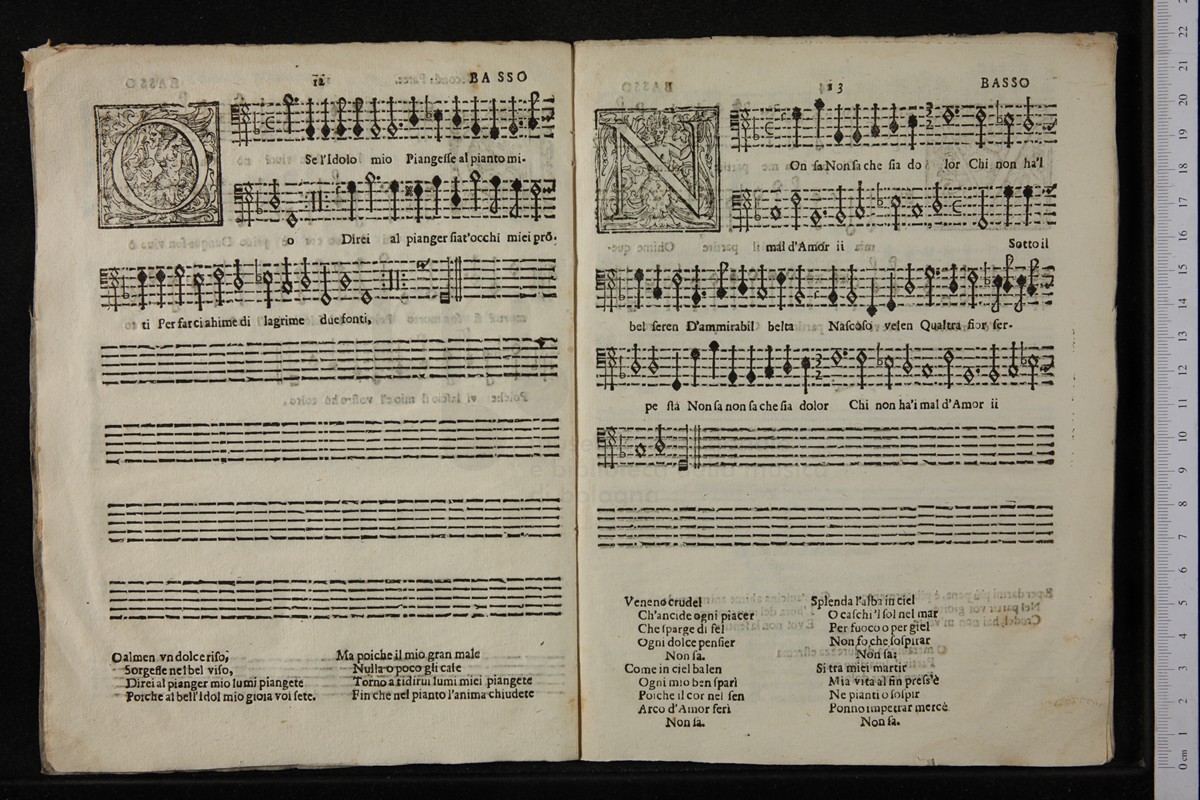 12
BASSO
O
Se l'Idolo mio Piangesse al pianto mi-
o Direi al pianger siat'occhi miei prō.
ti Per farci ahime di lagrime due fonti,
O almen vn dolce riso,
Sorgesse nel bel viso,
Direi al pianger mio lumi piangete
Poiche al bell'Idol mio gioia voi sete.
Ma poiche il mio gran male
Nulla o poco gli cale
Torno a ridirui lumi miei piangete
Fin che nel pianto l'anima chiudete
13
BASSO
N
On sa Non sa che sia do lor Chi non ha'l
mal d'Amor ii Sotto il
bel seren D'ammirabil belta Nascoso velen Qual tra fior ser-
pe sta Non sa non sa che sia dolor Chi non ha'i mal d'Amor ii
Veneno crudel
Ch'ancide ogni piacer
Che sparge di fel
Ogni dolce pensier
Non sa.
Come in ciel balen
Ogni mio ben sparì
Poiche il cor nel sen
Arco d'Amor ferì
Non sa.
Splenda l'alba in ciel
O caschi 'l sol nel mar
Per fuoco o per giel
Non so che sospirar
Non sa;
Si tra miei martir
Mia vita al fin press'è
Ne pianti o sospir
Ponno impetrar mercè
Non sa.
0 cm 1 2 3 4 5 6 7 8 9 10 11 12 13 14 15 16 17 18 19 20 21 22